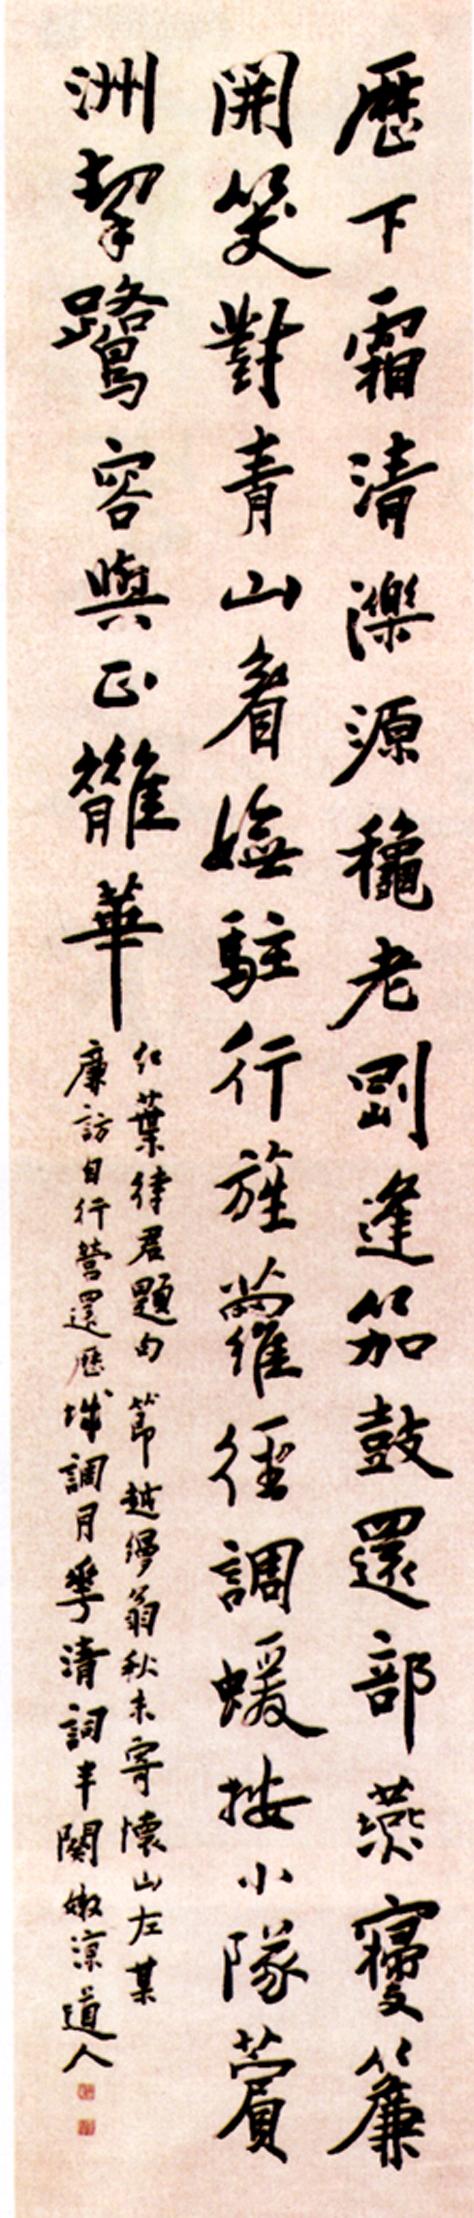 歷下霜清濼源穐老剛逢笳鼓還部燕寢簾
開笑對青山看嫵駐行旌蘿徑調蝯按小隊薲
洲挐鷺容與正䧿華
紅葉律君題句 節越縵翁秋末寄懷山左某
廉訪自行營還歷城調月華清詞半闋嫩涼道人